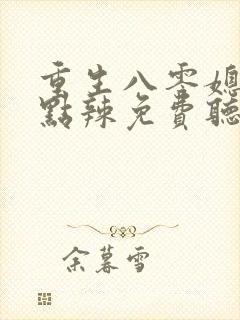 重生八零媳
點辣免費聽
余暮雪